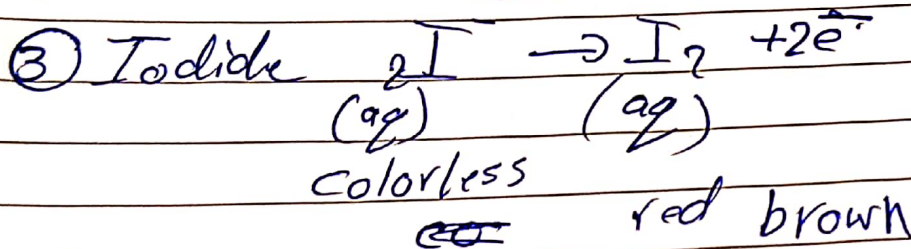 ③ Iodide 2I⁻ → I₂ +2e⁻
(aq) (aq)
colorless
red brown